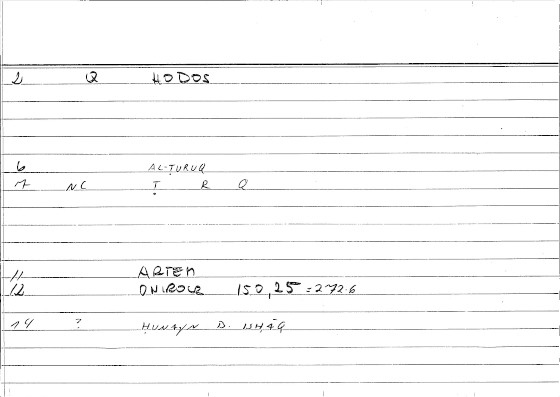 2 Q HODOS
6 AL-ṬURUQ
7 NC Ṭ R Q
11 ARTEM
12 ONIROCR 150,25=272.6
14 ? ḤUNAYN B. ISḤĀQ